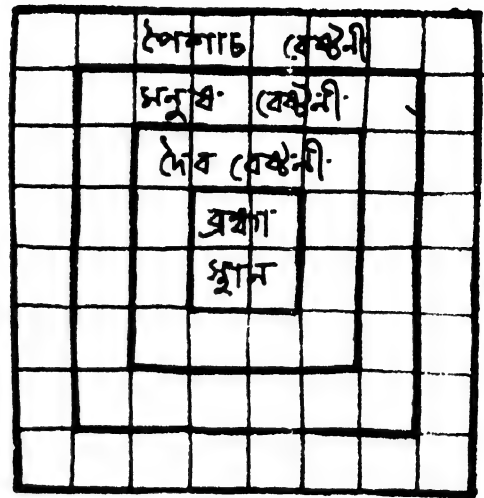 পৈশাচ বেষ্টনী
মনুষ্য বেষ্টনী
দৈব বেষ্টনী
ব্রহ্মা
স্থান